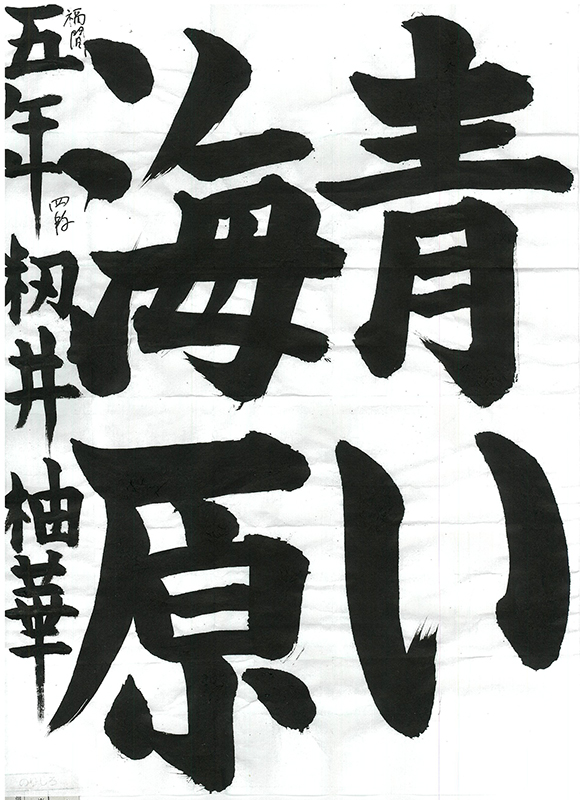 青い
海原
五年 籾井 柚華
福間